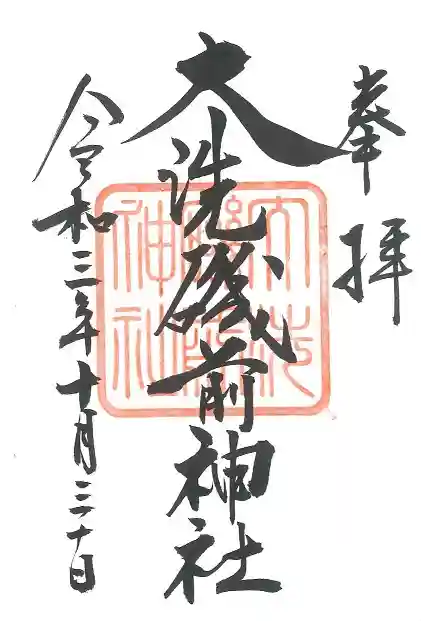 奉拝
大洗磯前神社
令和三年十月三十日
大洗磯前神社